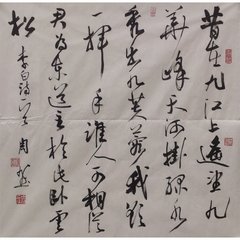 昔在九江上遥望九
華峰天河掛緑水
秀出九芙蓉我欲
一揮手誰人可相從
君為東道主於此卧雲
松
李白詩一首 周